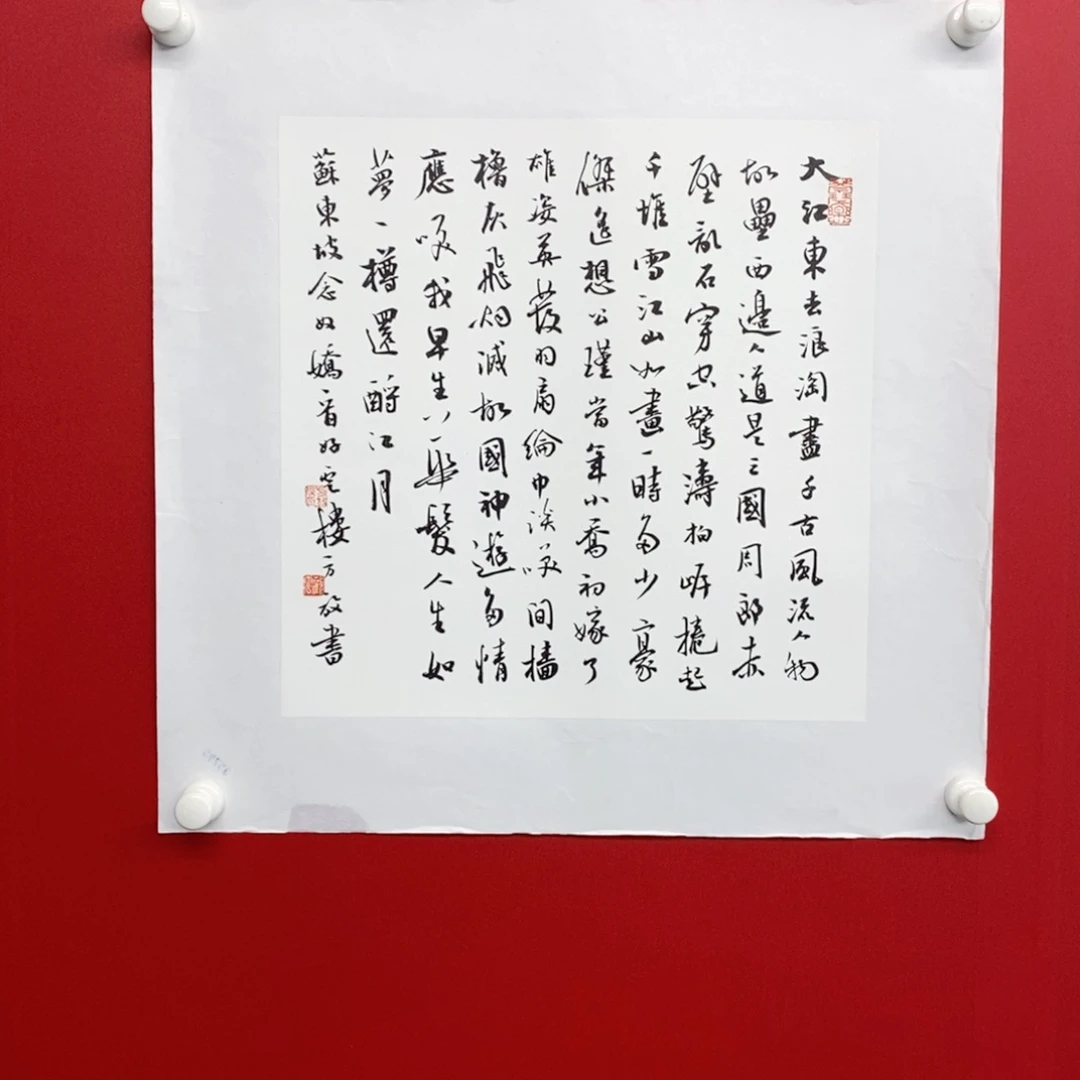 大江東去浪淘盡千古風流人物
故壘西邊人道是三國周郎赤
壁乱石穿空驚濤拍岸捲起
千堆雪江山如畫一時多少豪
傑遙想公瑾當年小喬初嫁了
雄姿英發羽扇綸巾談咲間檣
櫓灰飛烟滅故國神遊多情
應咲我早生華髮人生如
夢一樽還酹江月
蘇東坡念奴嬌一首好云樓方放書